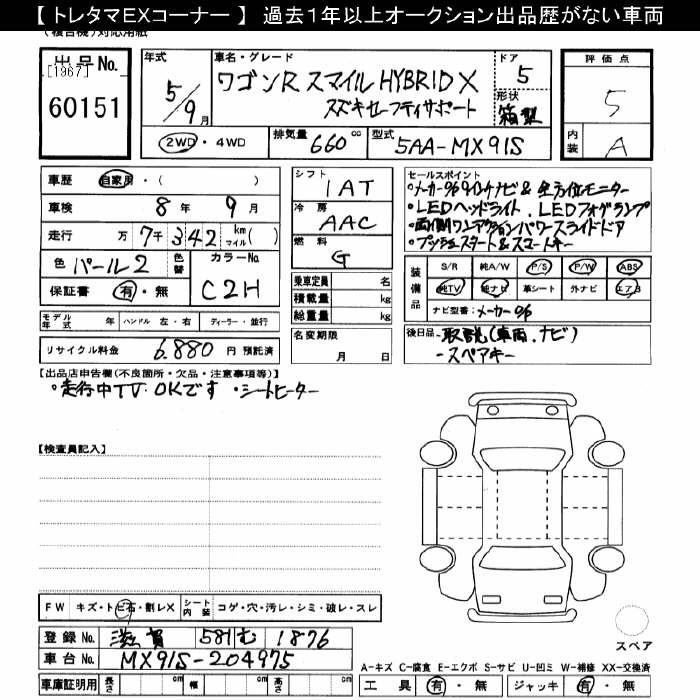 【 トレタマEXコーナー 】 過去1年以上オークション出品歴がない車両
(複合機)対応用紙
出品No.
[1967]
60151
年式
5/9月
車名・グレード
ワゴンR スマイル HYBRID X
スズキセーフティサポート
ドア
5
形状
箱型
評価点
5
内装
A
2WD・4WD
排気量 660 cc
型式 5AA-MX91S
車歴 自家用・( )
車検 8年 9月
走行 万 7千342 km マイル( )
色 パール2 色替
カラーNo. C2H
保証書 有・無
モデル年式 年 ハンドル 左・右 ディーラー・並行
リサイクル料金 6.880 円 預託済
シフト
1AT
冷房
AAC
燃料
G
乗車定員 名
積載量 kg
総重量 kg
名変期限
月 日
セールスポイント
・メーカーOP9インチナビ & 全方位モニター
・LEDヘッドライト . LEDフォグランプ
・両側ワンアクションパワースライドドア
・プッシュスタート&スマートキー
装備品
S/R 純A/W P/S P/W ABS
純TV 純ナビ 革シート 外ナビ エアB
ナビ型番:メーカーOP
後日品・取説(車両.ナビ)
・スペアキー
【出品店申告欄(不良箇所・欠品・注意事項等)】
・走行中TV.OKです ・シートヒーター
【検査員記入】
FW キズ・トビ石・割レX シート内装 コゲ・穴・汚レ・シミ・破レ・スレ
登録No. 滋賀 581む 1876
車台No. MX91S-204975
車庫証明用 長さ cm 幅 cm 高さ cm
スペア
A-キズ C-腐食 E-エクボ S-サビ U-凹ミ W-補修 XX-交換済
工具 有・無 ジャッキ 有・無